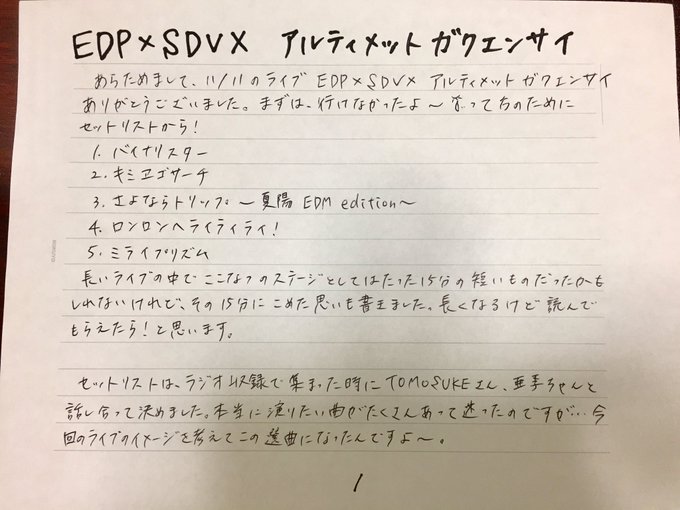 EDP×SDVX アルティメット ガクエンサイ
あらためまして、11/11のライブ EDP×SDVX アルティメット ガクエンサイ
ありがとうございました。まずは、行けなかったよ〜 なって方のために
セットリストから!
1. バイナリスター
2. キミヱゴサーチ
3. さよならトリップ 〜夏陽 EDM edition〜
4. ロンロンへライライライ!
5. ミライプリズム
長いライブの中でここなつのステージとしてはたった15分の短いものだったかも
しれないけれど、その15分にこめた思いも書きました。長くなるけど読んで
もらえたら!と思います。
セットリストは、ラジオ収録で集まった時にTOMOSUKEさん、亜季ちゃんと
話し合って決めました。本当に演りたい曲がたくさんあって迷ったのですが…今
回のライブのイメージを考えてこの選曲になったんですよ〜。
1